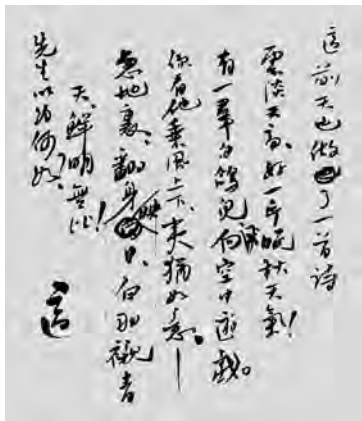 適前天也做了一首詩
雲淡天高,好一片晚秋天氣!
有一羣白鴿兒向空中遊戲。
你看他乘風上下,夷猶如意,——
忽地裏,翻身映日,白羽襯青
天,鮮明無比!
先生以為何如。
適